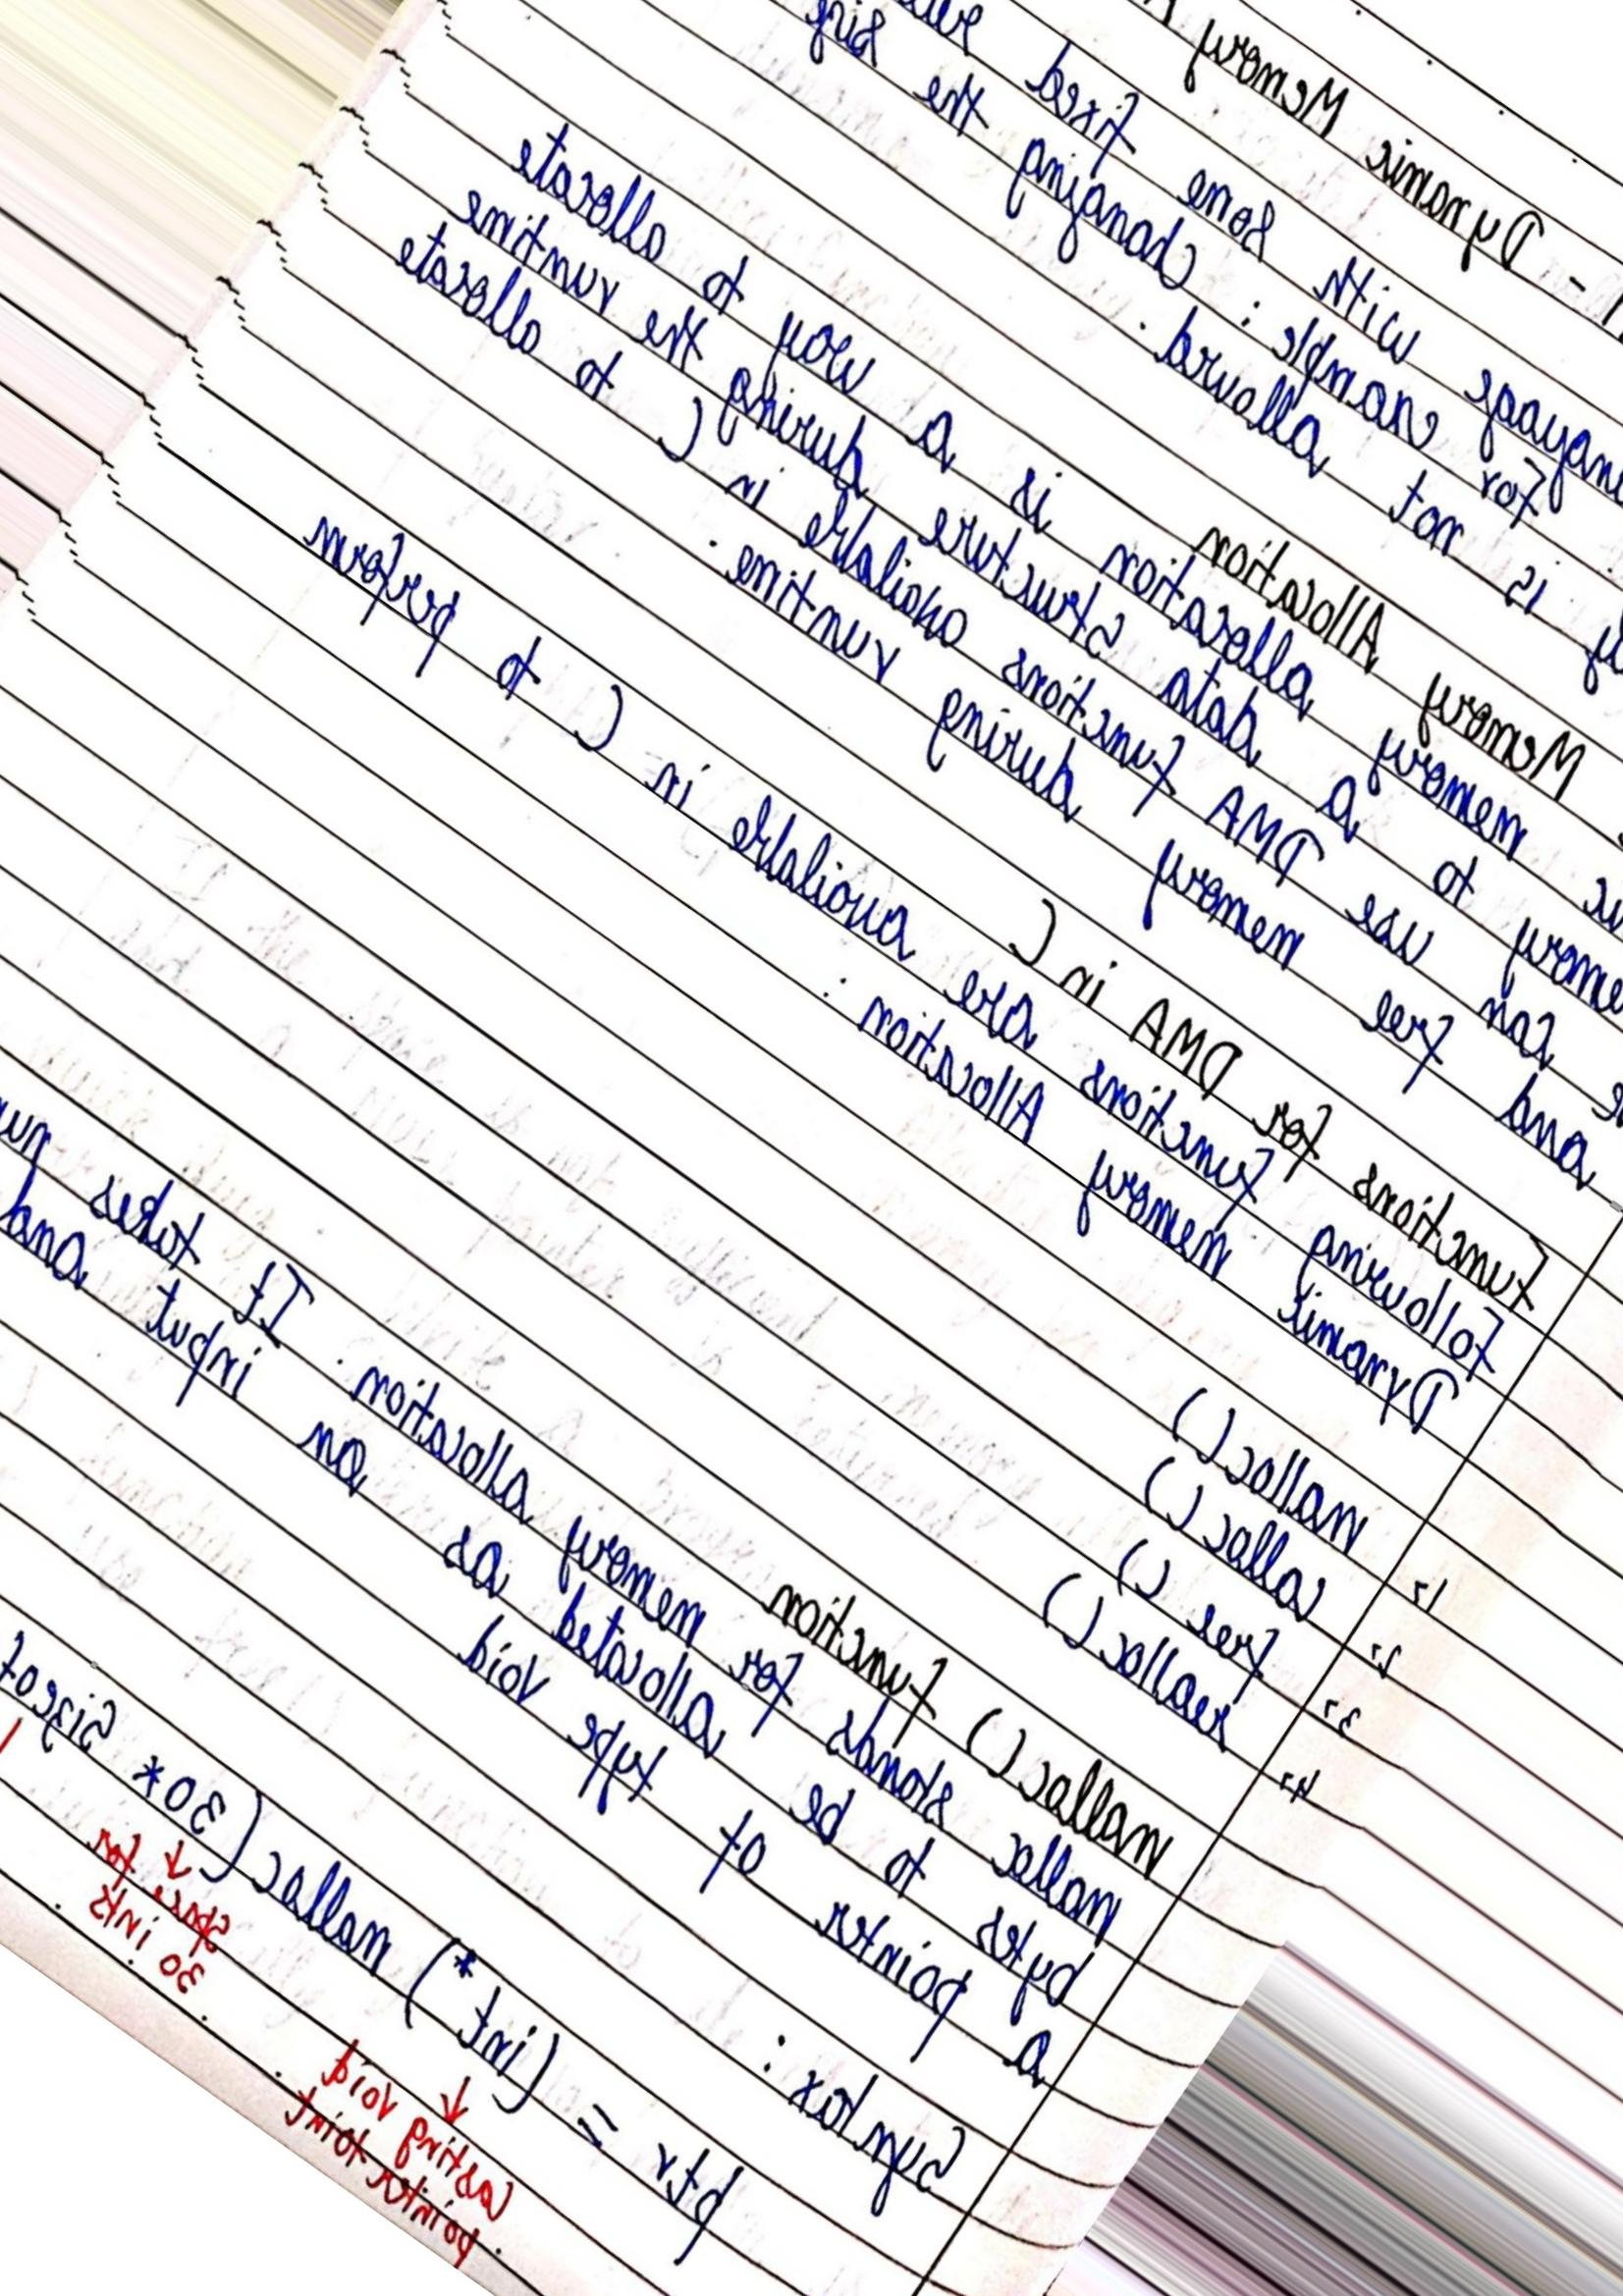 - Dynamic Memory
with some fixed
for example: Changing the
is not allowed.
Memory Allocation
memory allocation is a way to allocate
to a data structure during the runtime
can use DMA functions available in C to allocate
and free memory during runtime.
functions for DMA in C
Following functions are available in C to perform
Dynamic memory Allocation:
1, malloc()
2, calloc()
3, free()
4, realloc()
malloc() function
malloc stands for memory allocation. It takes
bytes to be allocated as an input and
a pointer of type void
Syntax:
ptr = (int *) malloc(30* sizeof
casting void
pointer to int
space for
30 ints